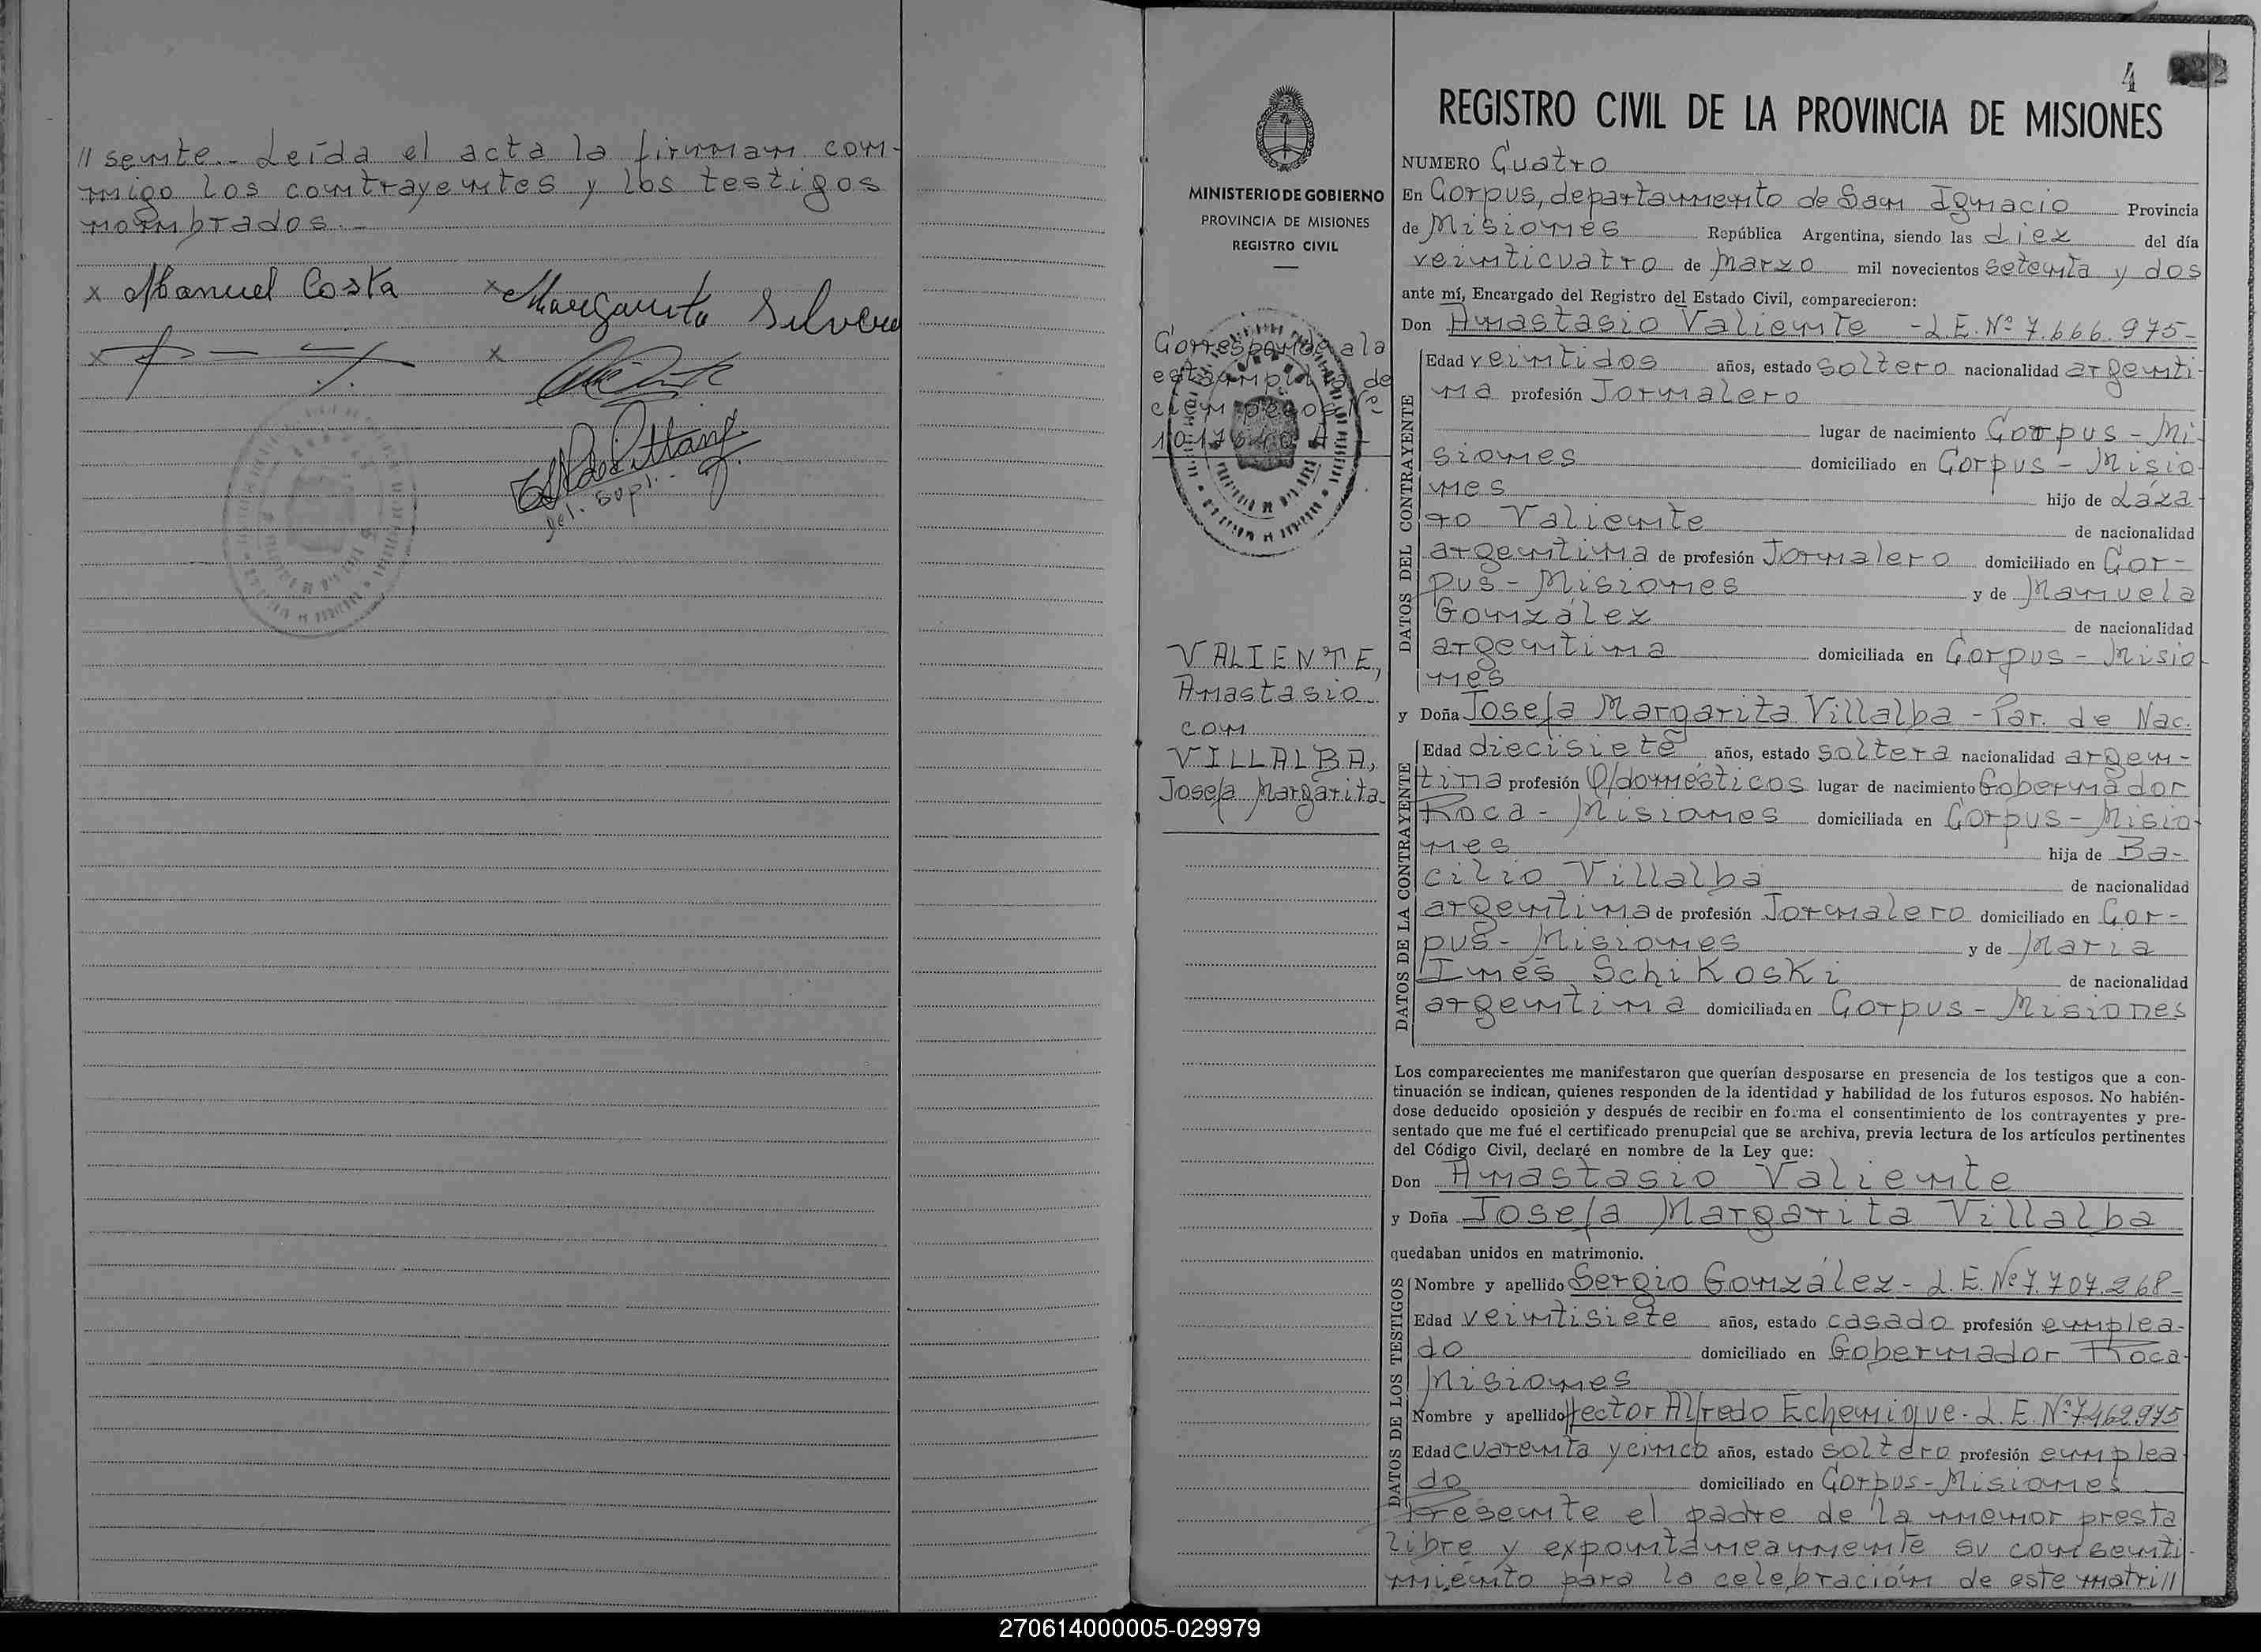 // sente.- Leída el acta la firman con-
migo los contrayentes y los testigos
nombrados.-
x Manuel Costa x Margarita Silvera
x x
Del. Supl.-
4
REGISTRO CIVIL DE LA PROVINCIA DE MISIONES
MINISTERIO DE GOBIERNO
PROVINCIA DE MISIONES
REGISTRO CIVIL
Corresponde a la
estampilla de
cien pesos Nº
VALIENTE,
Anastasio
con
VILLALBA,
Josefa Margarita
NUMERO Cuatro
En Corpus, departamento de San Ignacio Provincia
de Misiones República Argentina, siendo las diez del día
veinticuatro de Marzo mil novecientos setenta y dos
ante mí, Encargado del Registro del Estado Civil, comparecieron:
Don Anastasio Valiente - L.E. Nº 7.666.975-
DATOS DEL CONTRAYENTE
Edad veintidos años, estado soltero nacionalidad argenti-
na profesión Jornalero
lugar de nacimiento Corpus - Mi-
siones domiciliado en Corpus - Misio-
nes hijo de Láza-
ro Valiente de nacionalidad
argentina de profesión Jornalero domiciliado en Cor-
pus - Misiones y de Manuela
González de nacionalidad
argentina domiciliada en Corpus - Misio-
nes
y Doña Josefa Margarita Villalba - Par. de Nac.
DATOS DE LA CONTRAYENTE
Edad diecisiete años, estado soltera nacionalidad argen-
tina profesión Q/domésticos lugar de nacimiento Gobernador
Roca - Misiones domiciliada en Corpus - Misio-
nes hija de Ba-
cilio Villalba de nacionalidad
argentina de profesión Jornalero domiciliado en Cor-
pus - Misiones y de María
Inés Schikoski de nacionalidad
argentina domiciliada en Corpus - Misiones
Los comparecientes me manifestaron que querían desposarse en presencia de los testigos que a con-
tinuación se indican, quienes responden de la identidad y habilidad de los futuros esposos. No habién-
dose deducido oposición y después de recibir en forma el consentimiento de los contrayentes y pre-
sentado que me fué el certificado prenupcial que se archiva, previa lectura de los artículos pertinentes
del Código Civil, declaré en nombre de la Ley que:
Don Anastasio Valiente
y Doña Josefa Margarita Villalba
quedaban unidos en matrimonio.
DATOS DE LOS TESTIGOS
Nombre y apellido Sergio González - L.E. Nº 7.707.268-
Edad veintisiete años, estado casado profesión emplea-
do domiciliado en Gobernador Roca-
Misiones
Nombre y apellido Hector Alfredo Echenique - L.E. Nº 7462975
Edad cuarenta y cinco años, estado soltero profesión emplea-
do domiciliado en Corpus - Misiones
Presente el padre de la menor presta
libre y expontaneamente su consenti-
miento para la celebración de este matri//
270614000005-029979